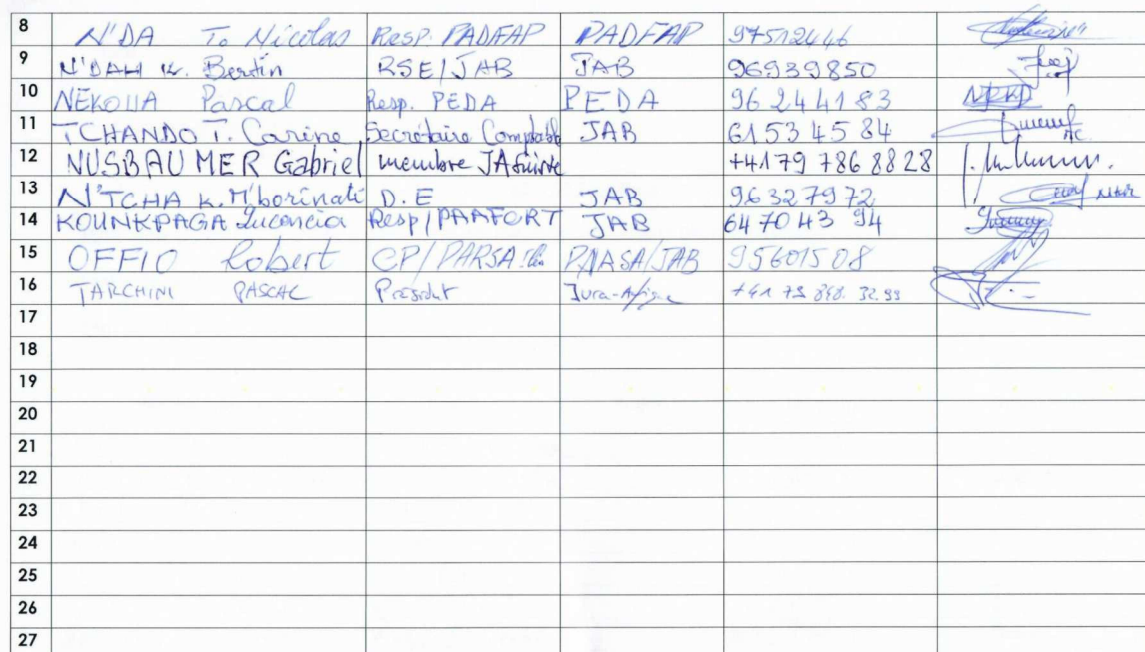 8 N'DA To Nicolas Resp. PADFAP PADFAP 97512446
9 N'DAH K. Bertin RSE/JAB JAB 96939850
10 NEKOUA Pascal Resp. PEDA PEDA 96244183
11 TCHANDO T. Carine Secrétaire Comptable JAB 61534584
12 NUSBAUMER Gabriel membre JA Suisse +4179 786 8828
13 N'TCHA K. M'borinati D.E JAB 96327972
14 KOUNKPAGA Lucencia Resp/PAAFORT JAB 64704394
15 OFFIO Robert CP/PARSA JAB 95601508
16 TARCHINI PASCAL Président Jura-Afrique
17
18
19
20
21
22
23
24
25
26
27